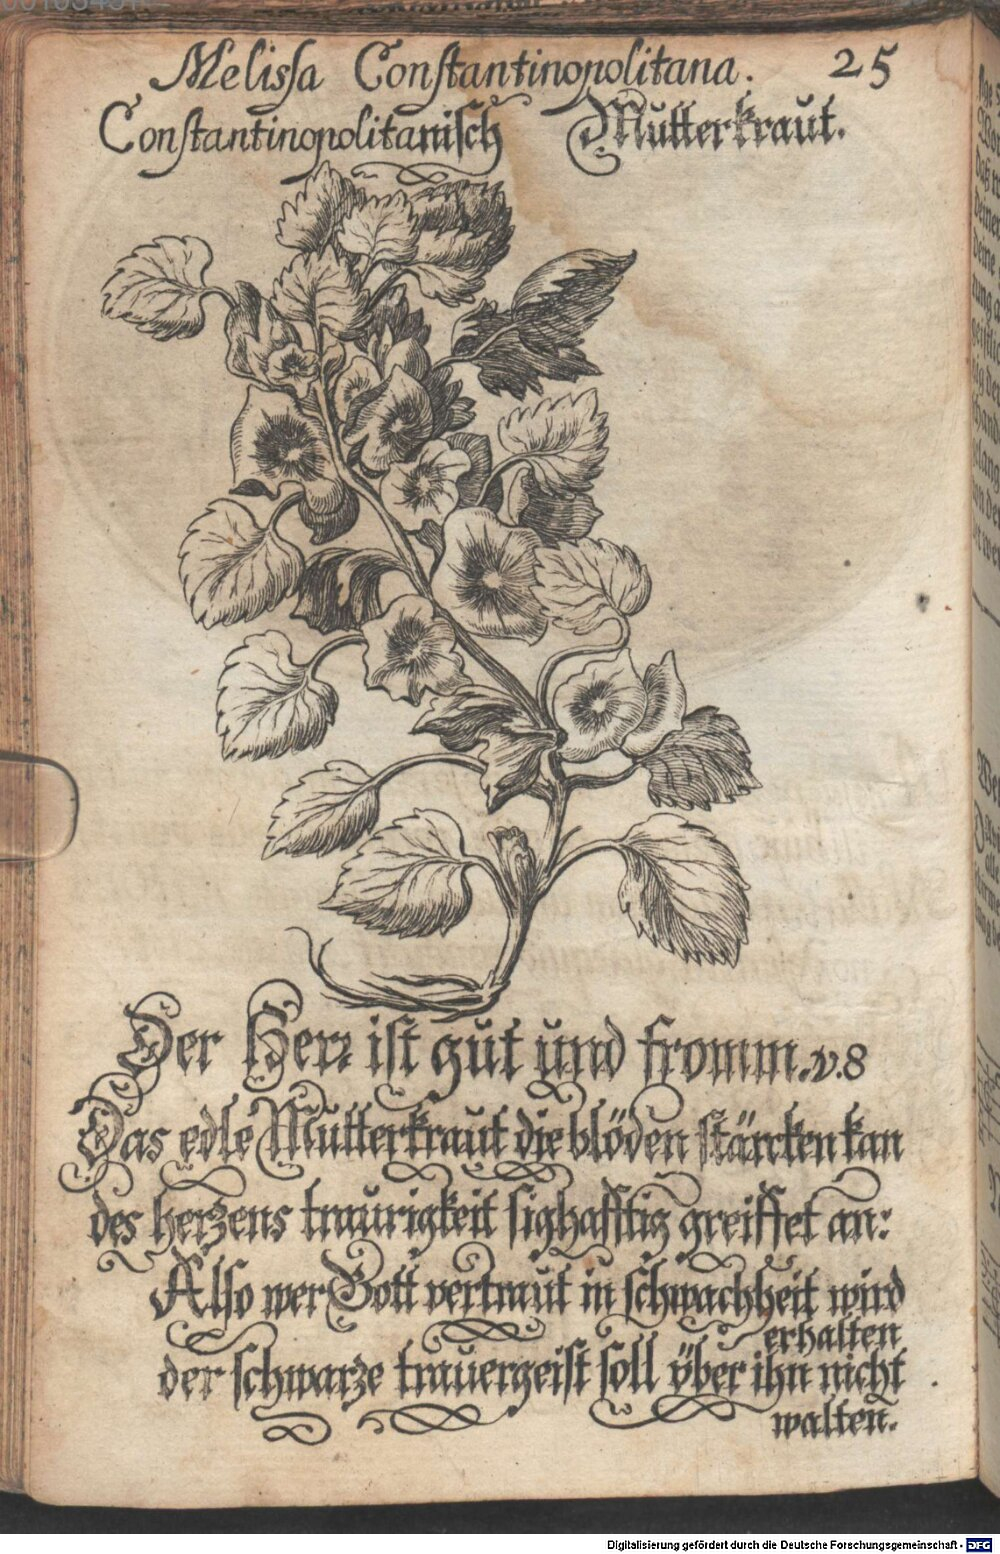 Melissa Constantinopolitana. 25
Constantinopolitanisch Mutterkraut.
Der Herr ist gut und fromm. v. 8
Das edle Mutterkraut die blöden stärcken kan
des herzens traurigkeit sighafftig greiffet an:
Also wer Gott vertraut in schwachheit wird
erhalten
der schwarze trauergeist soll über ihn nicht
walten.
Digitalisierung gefördert durch die Deutsche Forschungsgemeinschaft - DFG